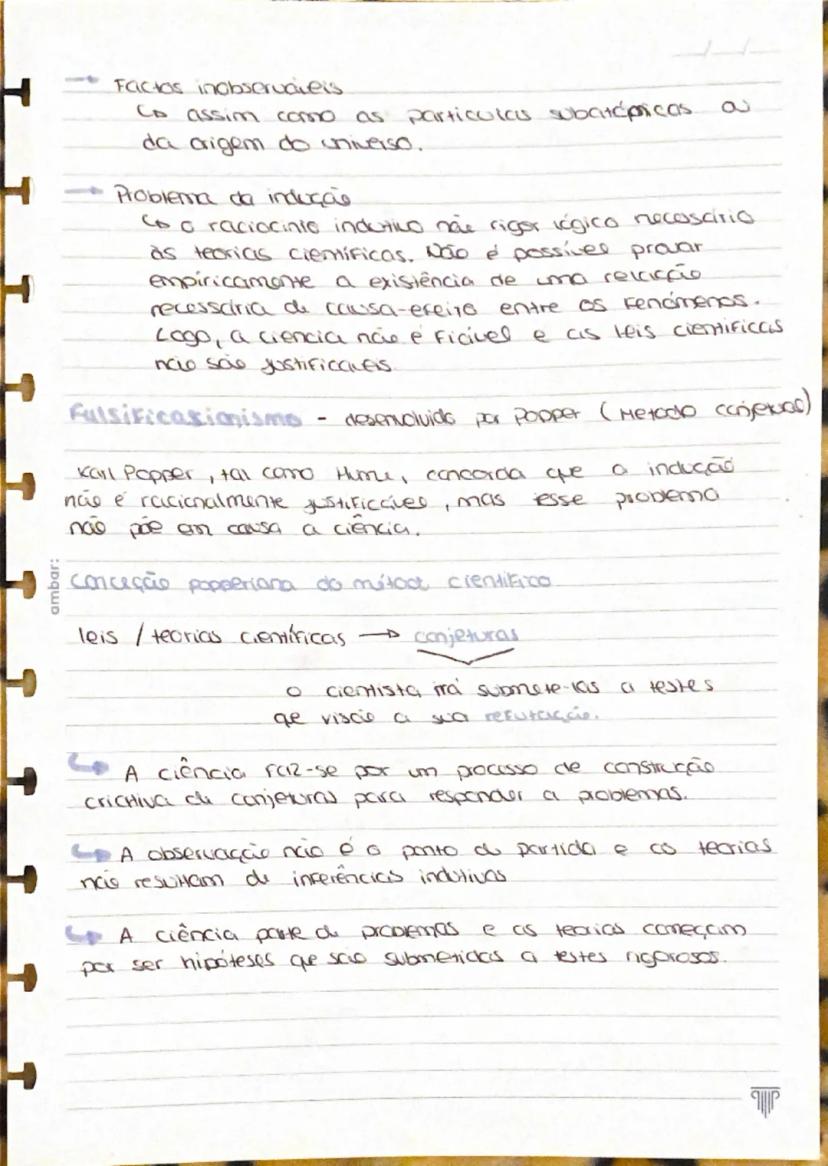 → Factos inobserváveis
↳ assim como as particulas subatómicas ou
da origem do universo.
→ Problema da indução
↳ o raciocínio indutivo não rigor lógico necessário
às teorias científicas. Não é possível provar
empíricamente a existência de uma relação
necessária de causa-efeito entre os fenómenos.
Logo, a ciencia não é fiável e as leis científicas
não são justificáveis.
Falsificasionismo - desenvolvido por Popper (Metodo conjeturas)
Karl Popper, tal como Hume, concorda que a indução
não é racionalmente justificável, mas esse problema
não põe em causa a ciência.
ambar:
Conceção popperiana do método científico
leis / teorias científicas → conjeturas
o cientista irá submete-las a testes
que visão a sua refutação.
↳ A ciência faz-se por um processo de construção
criativa de conjeturas para responder a problemas.
↳ A observação não é o ponto de partida e as teorias
não resultam de inferências indutivas
↳ A ciência parte de problemas e as teorias começam
por ser hipóteses que são submetidas a testes rigorosos.